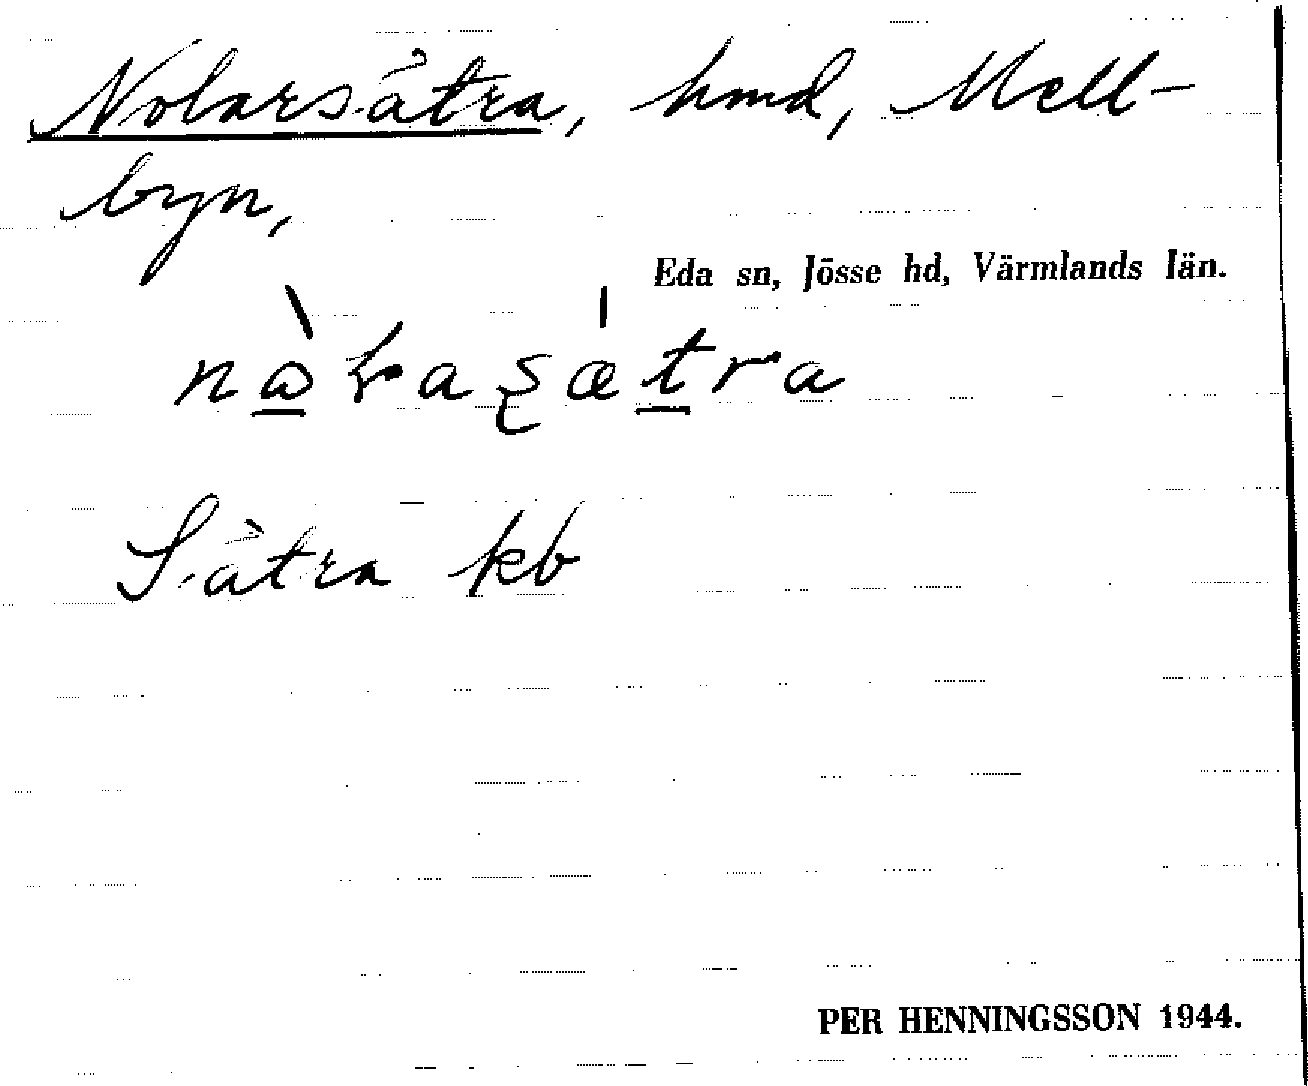 Nolarsätra, hmd, Mell-
byn,
Eda sn, Jösse hd, Värmlands län.
Sätra kb
PER HENNINGSSON 1944.